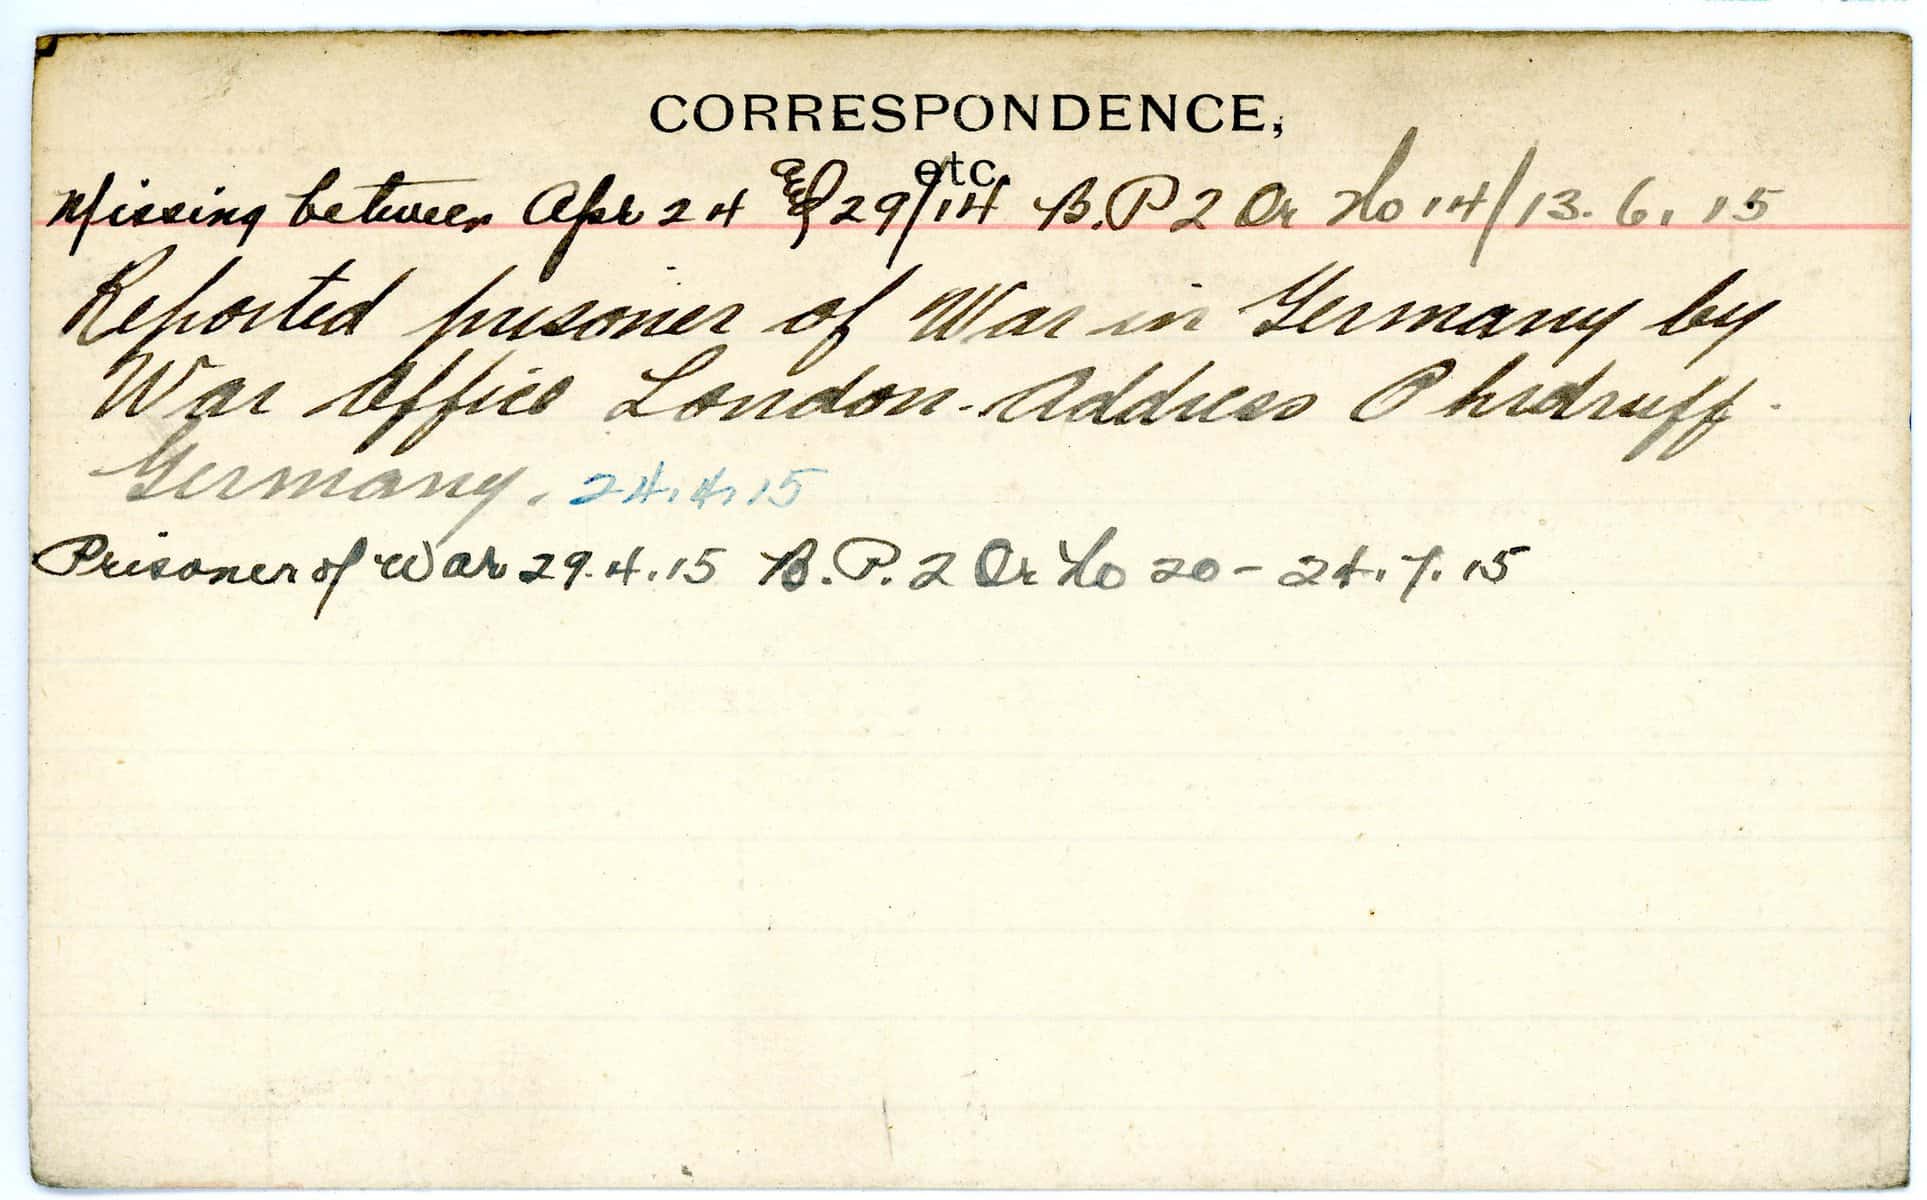 CORRESPONDENCE,
etc.
Missing between Apr 24 & 29/14 B.P 2 Or No 14/13.6.15
Reported prisoner of War in Germany by
War Office London. Address Ohrdruff.
Germany. 24.4.15
Prisoner of War 29.4.15 B.P.2 Or No 20 - 24.7.15